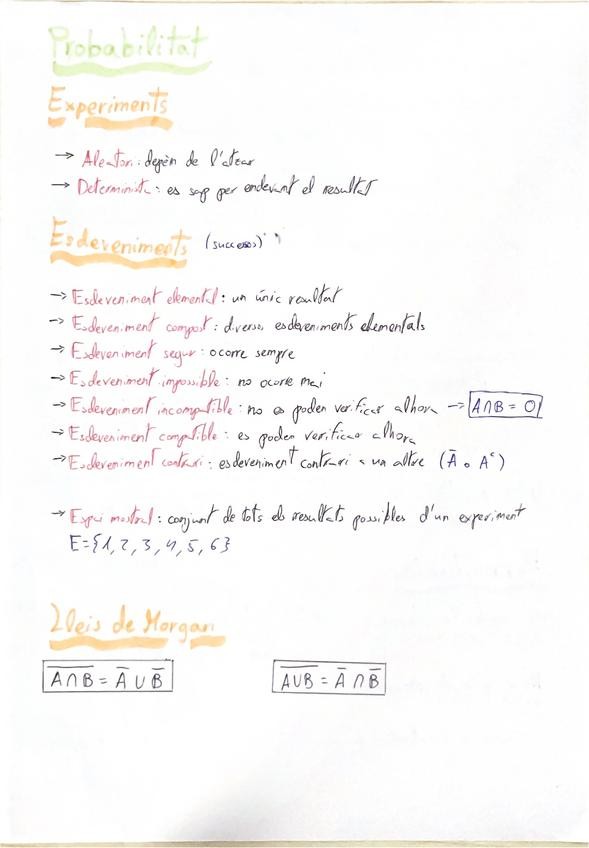 Probabilitat
Experiments
→ Aleatori: depèn de l'atzar
→ Determinista: es sap per endavant el resultat
Esdeveniments (successos)
→ Esdeveniment elemental: un únic resultat
→ Esdeveniment compost: diversos esdeveniments elementals
→ Esdeveniment segur: ocorre sempre
→ Esdeveniment impossible: no ocorre mai
→ Esdeveniment incompatible: no es poden verificar alhora → A∩B = Ø
→ Esdeveniment compatible: es poden verificar alhora
→ Esdeveniment contrari: esdeveniment contrari a un altre (Ā o Aᶜ)
→ Espai mostral: conjunt de tots els resultats possibles d'un experiment
E={1, 2, 3, 4, 5, 6}
Lleis de Morgan
A̅∩̅B̅ = A̅ ∪ B̅
A̅∪̅B̅ = A̅ ∩ B̅